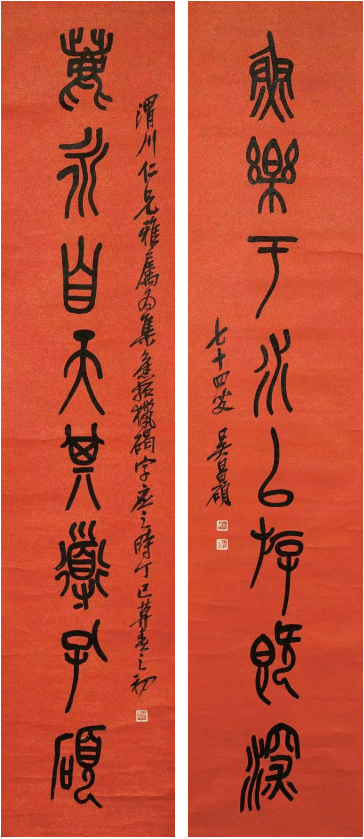 魚樂于水以斿既深
永自天其導孔碩
渭川仁兄雅屬為集拓獵碣字應之時丁巳莫春之初
七十四叟 吳昌碩